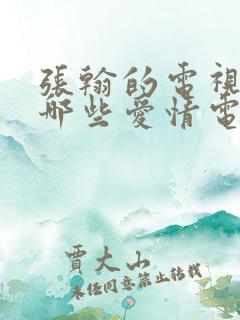 張翰的電視
哪些愛情電
賈大山
未經同意禁止轉載